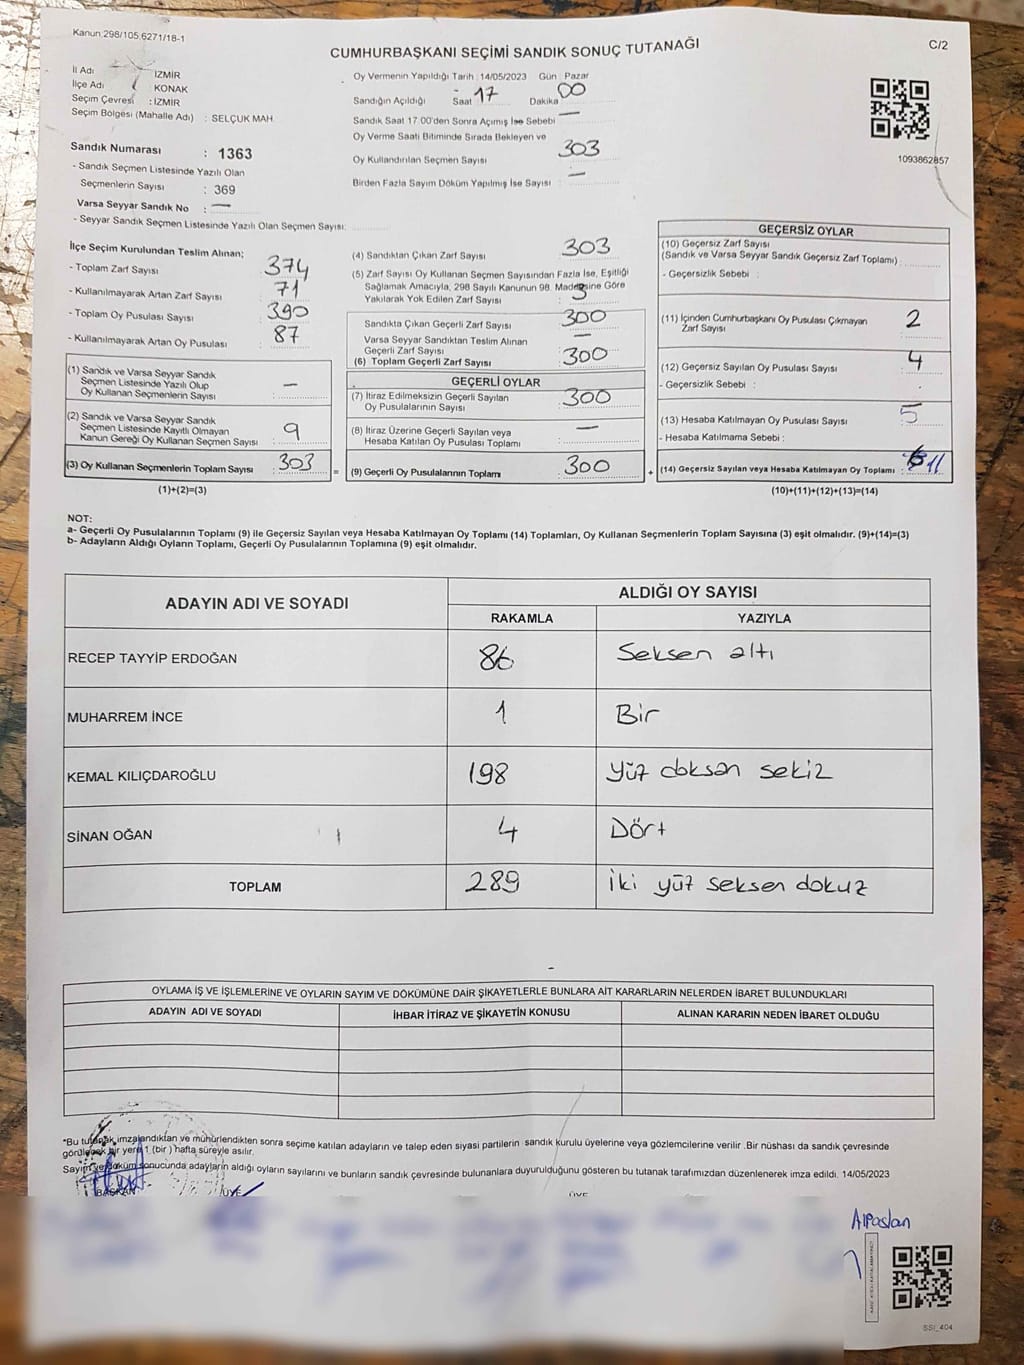 Kanun 298/105 6271/18-1
CUMHURBAŞKANI SEÇİMİ SANDIK SONUÇ TUTANAĞI
C/2
İl Adı : İZMİR
İlçe Adı : KONAK
Seçim Çevresi : İZMİR
Seçim Bölgesi (Mahalle Adı) : SELÇUK MAH.
Sandık Numarası : 1363
- Sandık Seçmen Listesinde Yazılı Olan
Seçmenlerin Sayısı : 369
Varsa Seyyar Sandık No : —
- Seyyar Sandık Seçmen Listesinde Yazılı Olan Seçmen Sayısı:
Oy Vermenin Yapıldığı Tarih : 14/05/2023 Gün : Pazar
Sandığın Açıldığı Saat : 17 Dakika : 00
Sandık Saat 17:00'den Sonra Açımış İse Sebebi —
Oy Verme Saati Bitiminde Sırada Bekleyen ve
Oy Kullandırılan Seçmen Sayısı : 303
Birden Fazla Sayım Döküm Yapılmış İse Sayısı : —
1093862857
İlçe Seçim Kurulundan Teslim Alınan;
- Toplam Zarf Sayısı : 374
- Kullanılmayarak Artan Zarf Sayısı : 71
- Toplam Oy Pusulası Sayısı : 390
- Kullanılmayarak Artan Oy Pusulası : 87
(1) Sandık ve Varsa Seyyar Sandık
Seçmen Listesinde Yazılı Olup
Oy Kullanan Seçmenlerin Sayısı : —
(2) Sandık ve Varsa Seyyar Sandık
Seçmen Listesinde Kayıtlı Olmayan
Kanun Gereği Oy Kullanan Seçmen Sayısı : 9
(3) Oy Kullanan Seçmenlerin Toplam Sayısı : 303
(1)+(2)=(3)
=
(4) Sandıktan Çıkan Zarf Sayısı : 303
(5) Zarf Sayısı Oy Kullanan Seçmen Sayısından Fazla İse, Eşitliği
Sağlamak Amacıyla, 298 Sayılı Kanunun 98. Maddesine Göre
Yakılarak Yok Edilen Zarf Sayısı : 3
Sandıkta Çıkan Geçerli Zarf Sayısı : 300
Varsa Seyyar Sandıktan Teslim Alınan
Geçerli Zarf Sayısı : —
(6) Toplam Geçerli Zarf Sayısı : 300
GEÇERLİ OYLAR
(7) İtiraz Edilmeksizin Geçerli Sayılan
Oy Pusulalarının Sayısı : 300
(8) İtiraz Üzerine Geçerli Sayılan veya
Hesaba Katılan Oy Pusulası Toplamı : —
(9) Geçerli Oy Pusulalarının Toplamı : 300
+
GEÇERSİZ OYLAR
(10) Geçersiz Zarf Sayısı
(Sandık ve Varsa Seyyar Sandık Geçersiz Zarf Toplamı) :
- Geçersizlik Sebebi :
(11) İçinden Cumhurbaşkanı Oy Pusulası Çıkmayan
Zarf Sayısı : 2
(12) Geçersiz Sayılan Oy Pusulası Sayısı : 4
- Geçersizlik Sebebi :
(13) Hesaba Katılmayan Oy Pusulası Sayısı : 5
- Hesaba Katılmama Sebebi :
(14) Geçersiz Sayılan veya Hesaba Katılmayan Oy Toplamı : 11
(10)+(11)+(12)+(13)=(14)
NOT:
a- Geçerli Oy Pusulalarının Toplamı (9) ile Geçersiz Sayılan veya Hesaba Katılmayan Oy Toplamı (14) Toplamları, Oy Kullanan Seçmenlerin Toplam Sayısına (3) eşit olmalıdır. (9)+(14)=(3)
b- Adayların Aldığı Oyların Toplamı, Geçerli Oy Pusulalarının Toplamına (9) eşit olmalıdır.
ADAYIN ADI VE SOYADI
ALDIĞI OY SAYISI
RAKAMLA YAZIYLA
RECEP TAYYİP ERDOĞAN 86 Seksen altı
MUHARREM İNCE 1 Bir
KEMAL KILIÇDAROĞLU 198 Yüz doksan sekiz
SİNAN OĞAN 4 Dört
TOPLAM 289 iki yüz seksen dokuz
OYLAMA İŞ VE İŞLEMLERİNE VE OYLARIN SAYIM VE DÖKÜMÜNE DAİR ŞİKAYETLERLE BUNLARA AİT KARARLARIN NELERDEN İBARET BULUNDUKLARI
ADAYIN ADI VE SOYADI İHBAR İTİRAZ VE ŞİKAYETİN KONUSU ALINAN KARARIN NEDEN İBARET OLDUĞU
*Bu tutanak imzalandıktan ve mühürlendikten sonra seçime katılan adayların ve talep eden siyasi partilerin sandık kurulu üyelerine veya gözlemcilerine verilir .Bir nüshası da sandık çevresinde
görülecek bir yere 1 (bir ) hafta süreyle asılır.
Sayım ve döküm sonucunda adayların aldığı oyların sayılarını ve bunların sandık çevresinde bulunanlara duyurulduğunu gösteren bu tutanak tarafımızdan düzenlenerek imza edildi. 14/05/2023
BAŞKAN ÜYE ÜYE
Alpaslan
SSİ_404